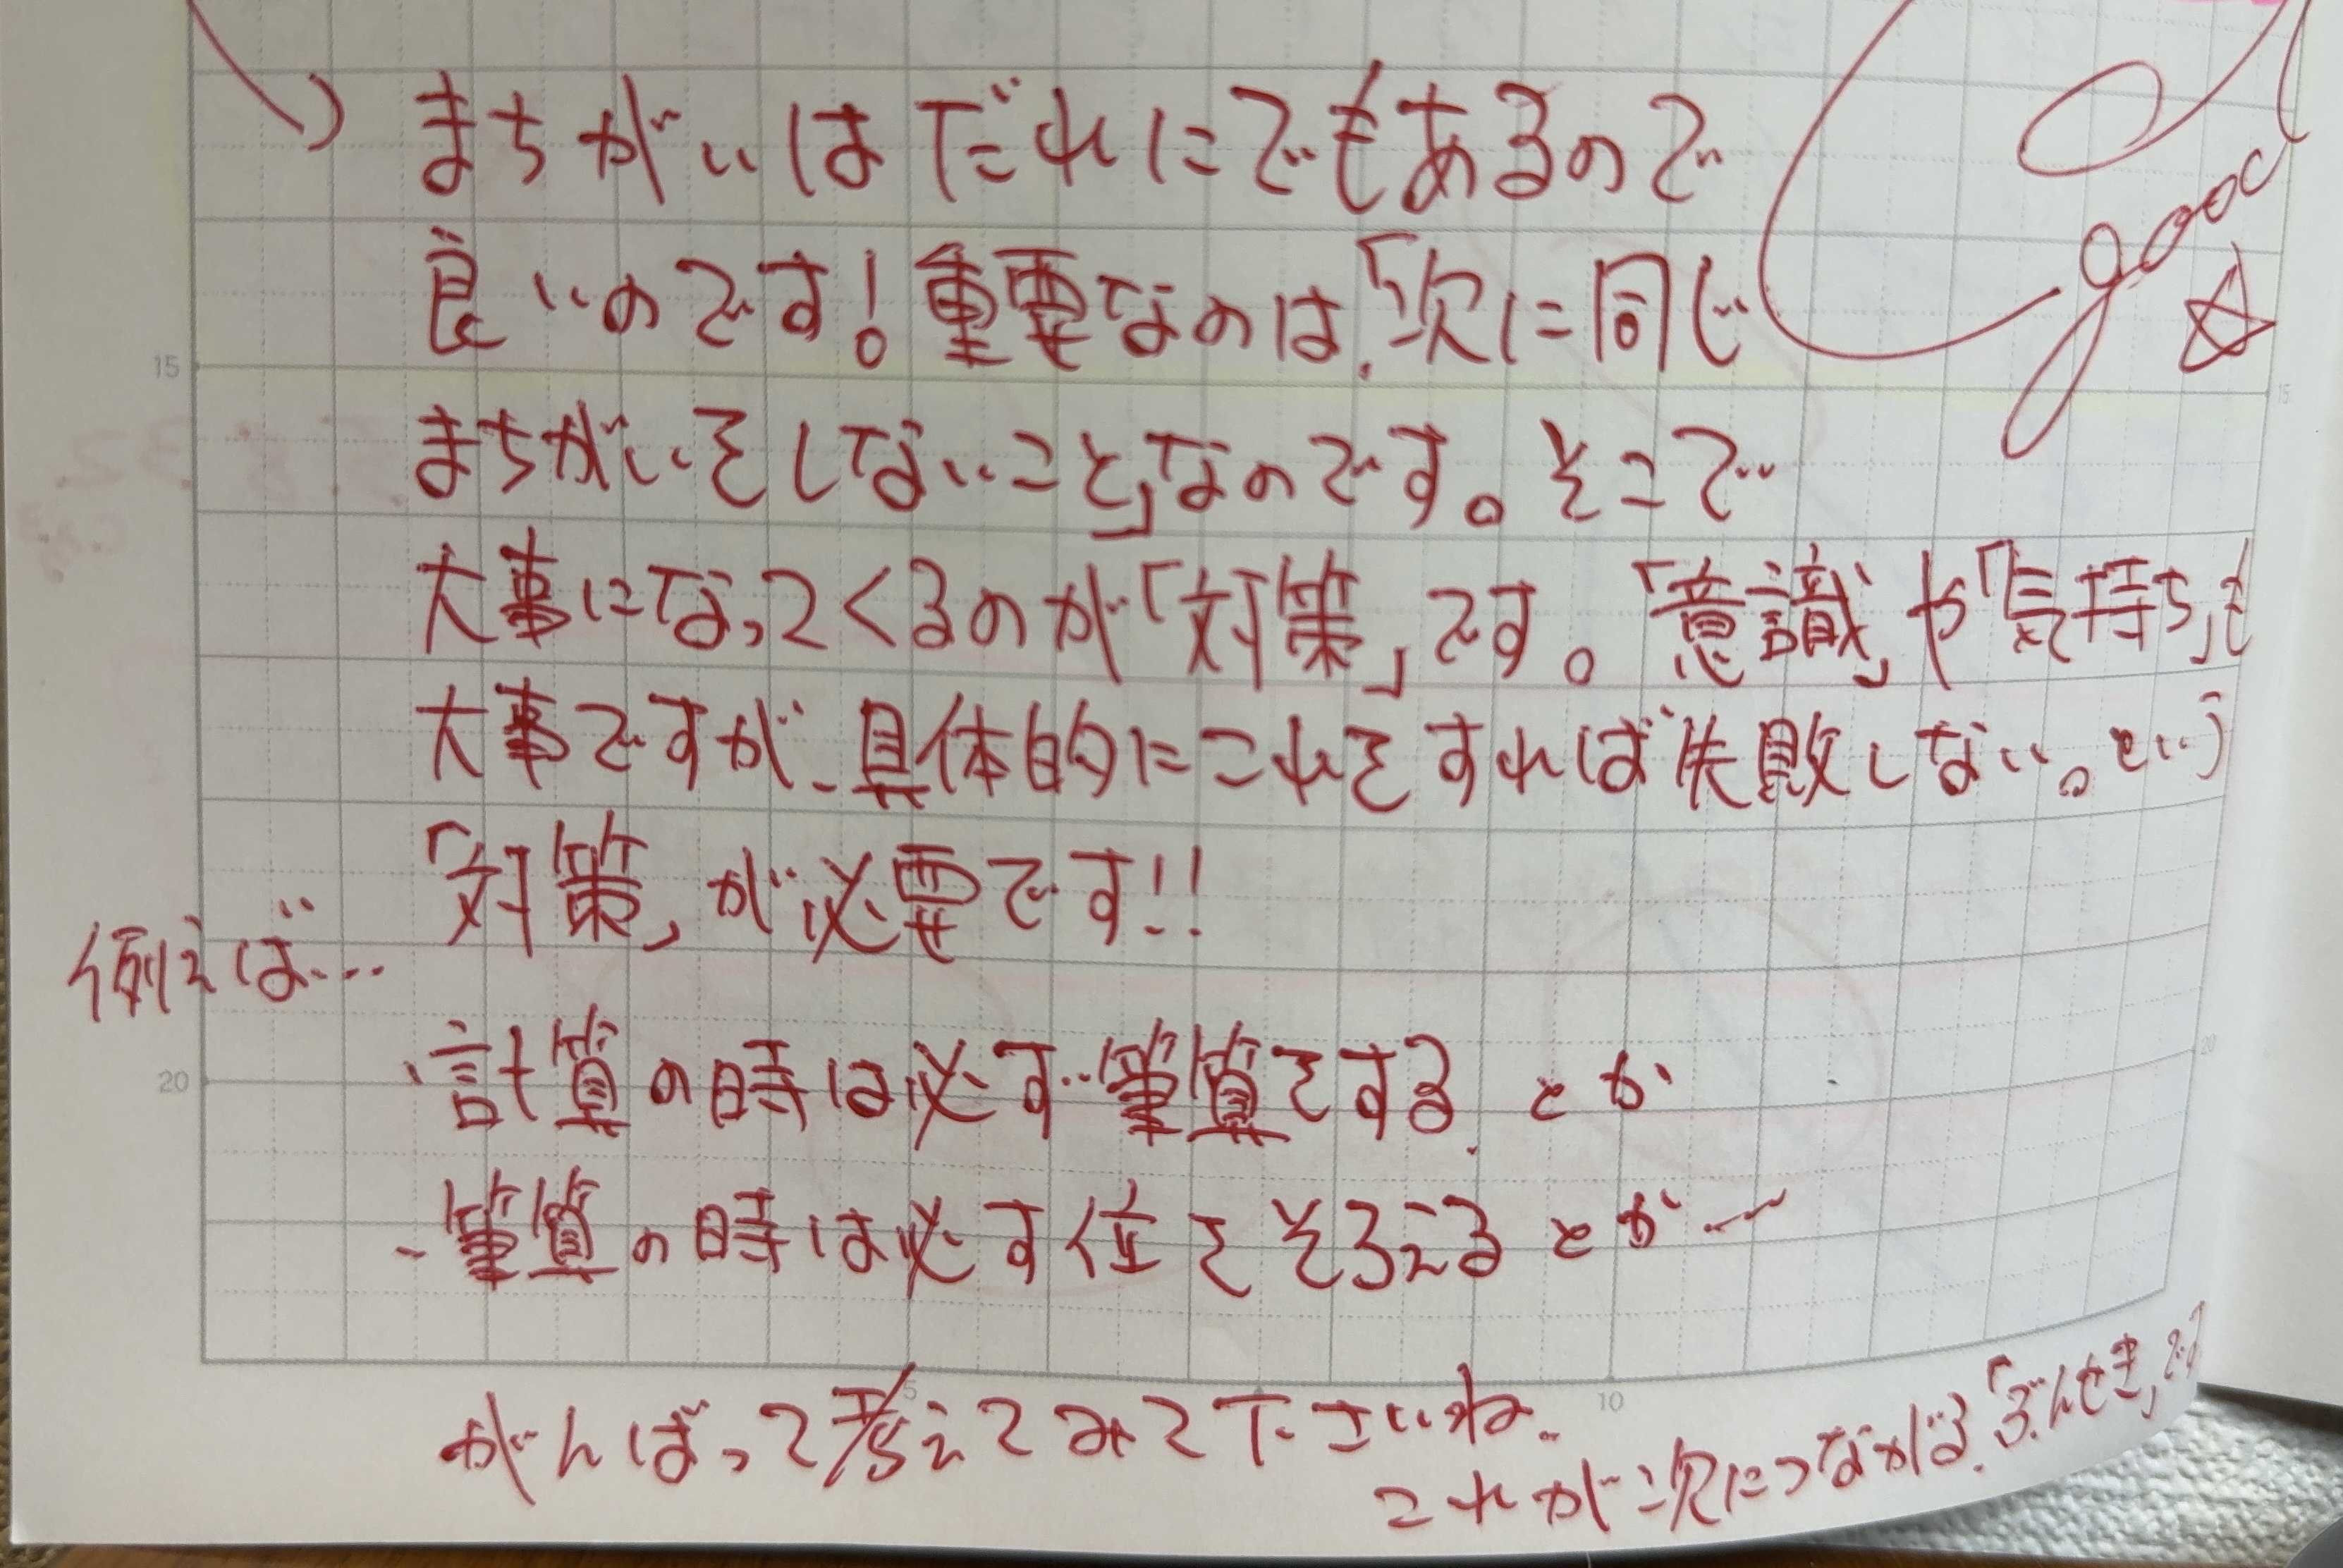 まちがいはだれにでもあるので
良いのです！重要なのは、「次に同じ
まちがいをしないこと」なのです。そこで
大事になってくるのが「対策」です。「意識」や「気持ち」も
大事ですが、具体的にこれをすれば失敗しない。という
「対策」が必要です!!
例えば…
・計算の時は必ず筆算をする。とか
・筆算の時は必ず位をそろえるとか
がんばって考えてみて下さいね。
これが次につながる、「ぶんせき」
good☆
15
15
20
20
5
10